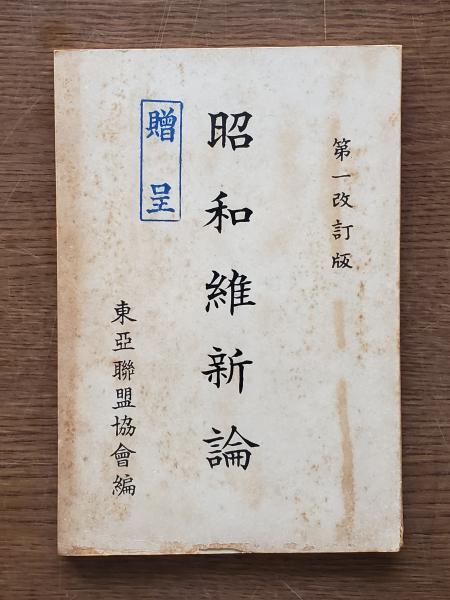 第一改訂版
昭和維新論
贈呈
東亞聯盟協會編